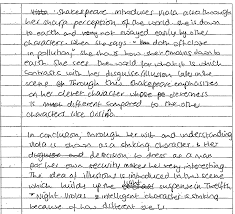 Shakespeare introduces viola also through
her sharp perception of the world. she is down
to earth and very not swayed easily by other
characters. when she says "
pollution" she shows how
earth. she sees the world for what it is which
contrasts with her disguise/illusion later in the
scene. Through this Shakespeare emphasises
on her clever character whose
is different compared to the other
characters like orsino.
In conclusion, through her wit and understanding
viola is shown as a striking character. her
decision to dress as a man
for her own security makes her very interesting.
The idea of illusion is introduced in this scene
which builds up the suspense in Twelfth
Night. Viola's intelligent character is striking
because of how different she is.